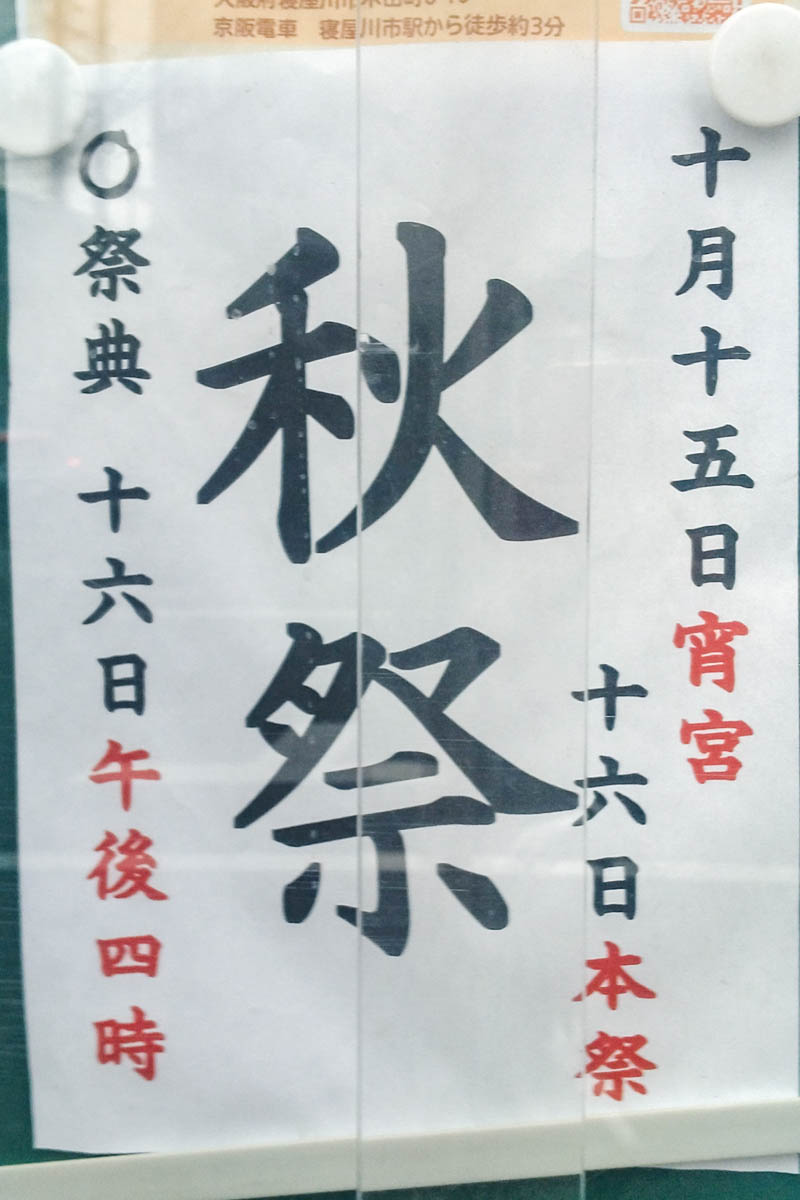 京阪電車　寝屋川市駅から徒歩約3分
十月十五日宵宮
十六日本祭
秋祭
〇祭典　十六日午後四時